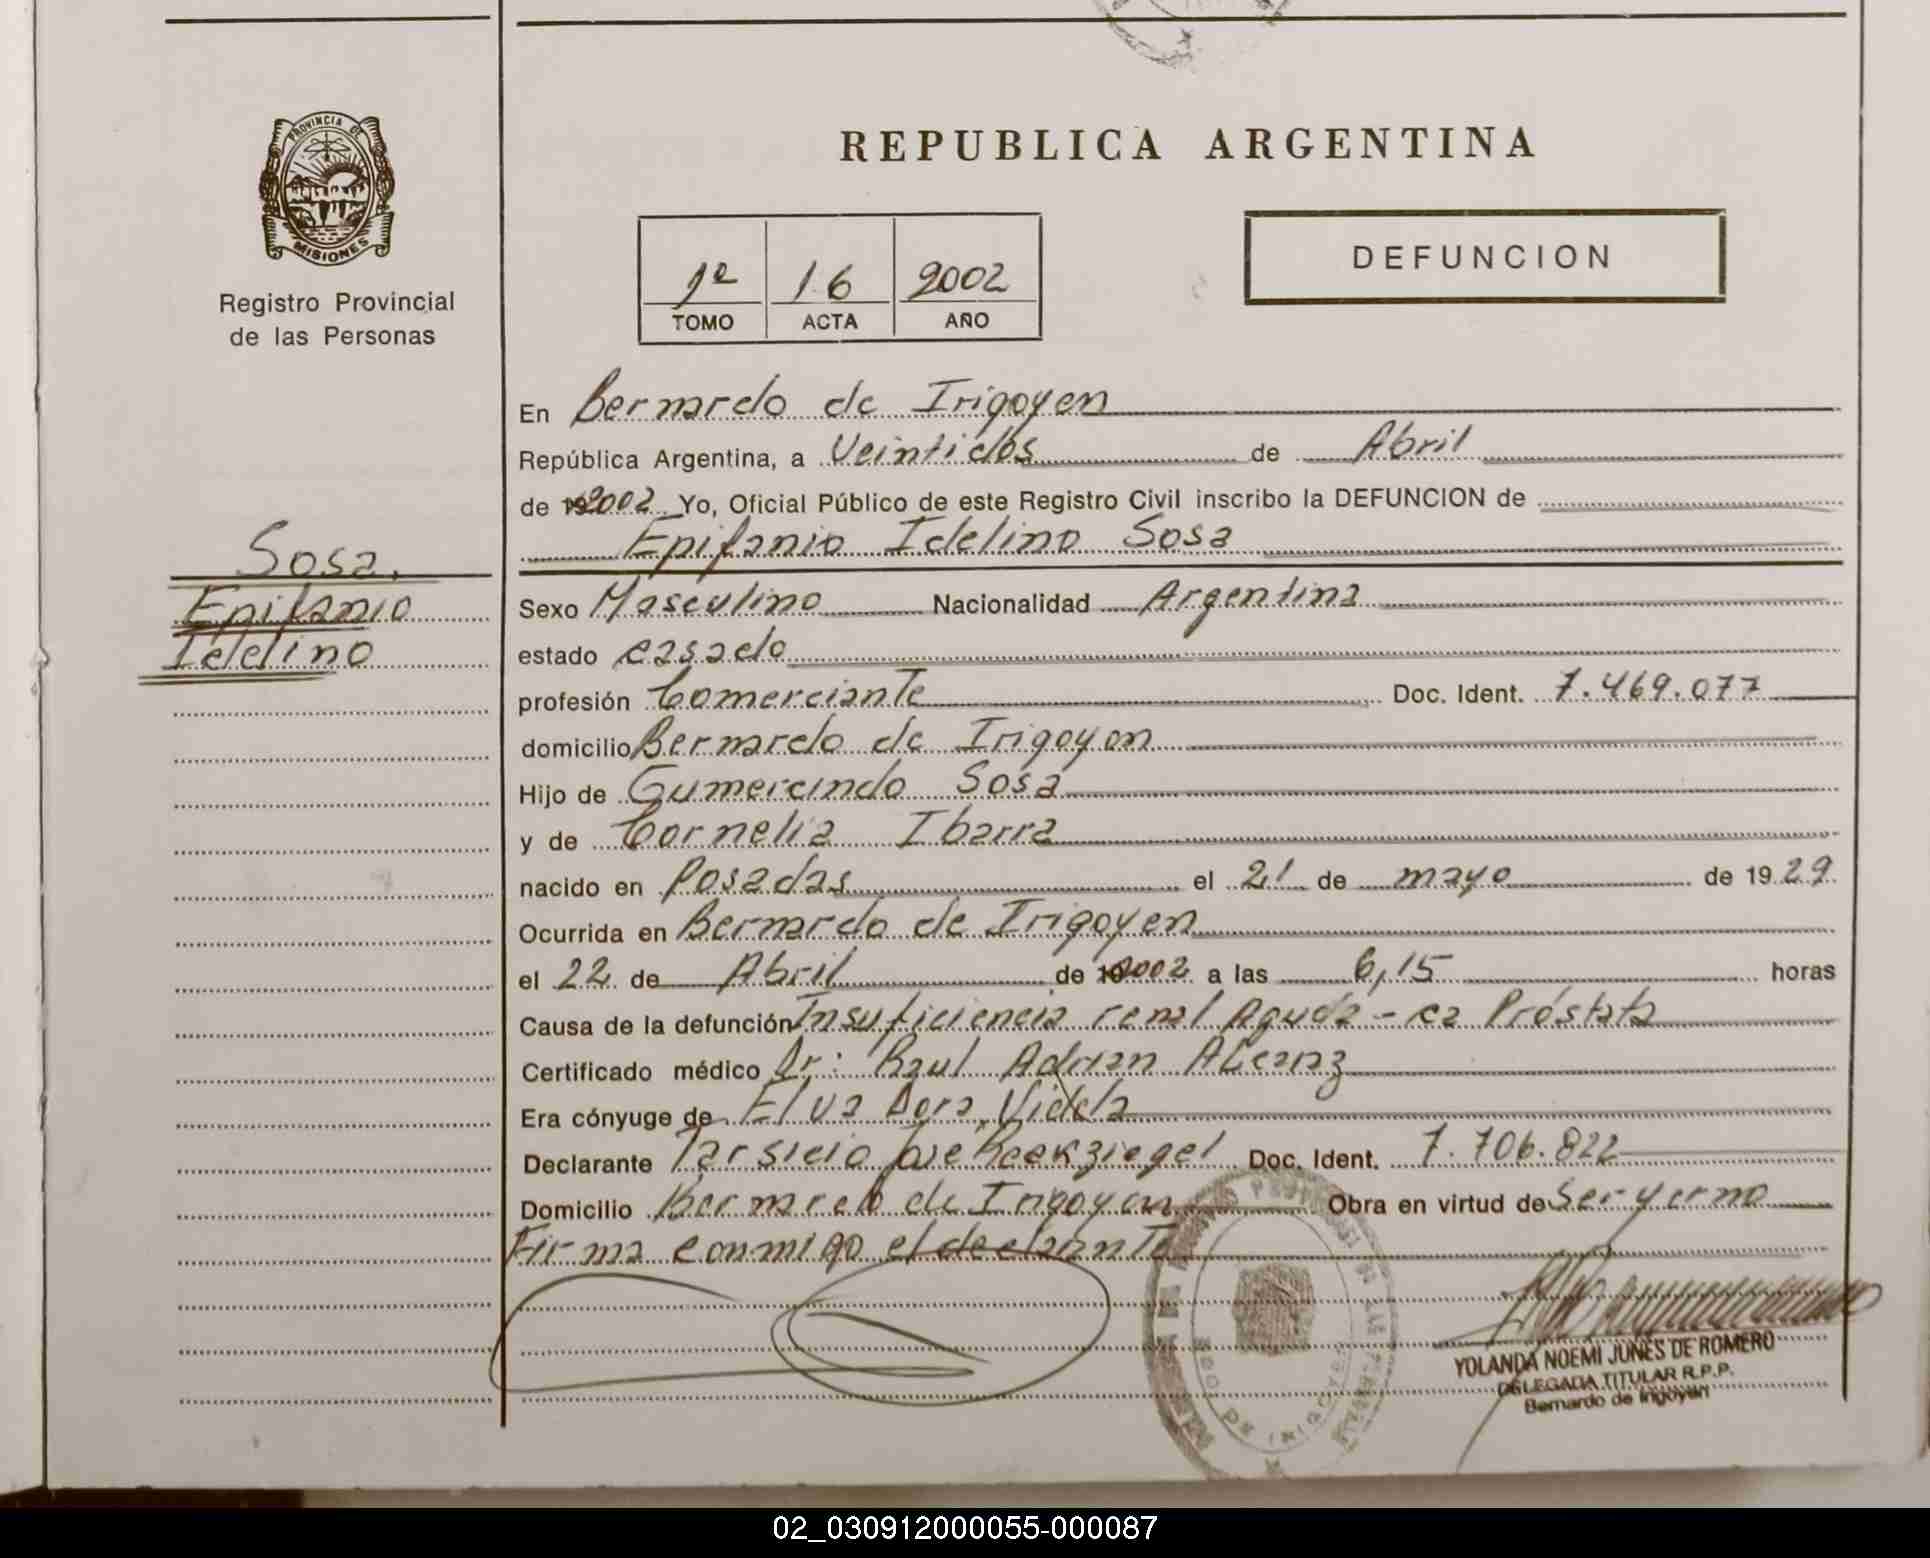 PROVINCIA DE
MISIONES
Registro Provincial
de las Personas
REPUBLICA ARGENTINA
1º 16 2002
TOMO ACTA AÑO
DEFUNCION
En Bernardo de Irigoyen
República Argentina, a Veintidos de Abril
de 2002 Yo, Oficial Público de este Registro Civil inscribo la DEFUNCION de
Epifanio Idelino Sosa
Sosa.
Epifanio
Idelino
Sexo Masculino Nacionalidad Argentina
estado casado
profesión Comerciante Doc. Ident. 7.469.077
domicilio Bernardo de Irigoyen
Hijo de Gumercindo Sosa
y de Cornelia Ibarra
nacido en Posadas el 21 de mayo de 1929
Ocurrida en Bernardo de Irigoyen
el 22 de Abril de 2002 a las 6,15 horas
Causa de la defunción Insuficiencia renal Aguda - ca Próstata
Certificado médico Dr: Raul Adrian
Era cónyuge de Elva Dora Videla
Declarante Tarsicio José Doc. Ident. 7.706.822
Domicilio Bernardo de Irigoyen Obra en virtud de Ser yerno
Firma conmigo el declarante
YOLANDA NOEMI JUNES DE ROMERO
DELEGADA TITULAR R.P.P.
Bernardo de Irigoyen
02_030912000055-000087